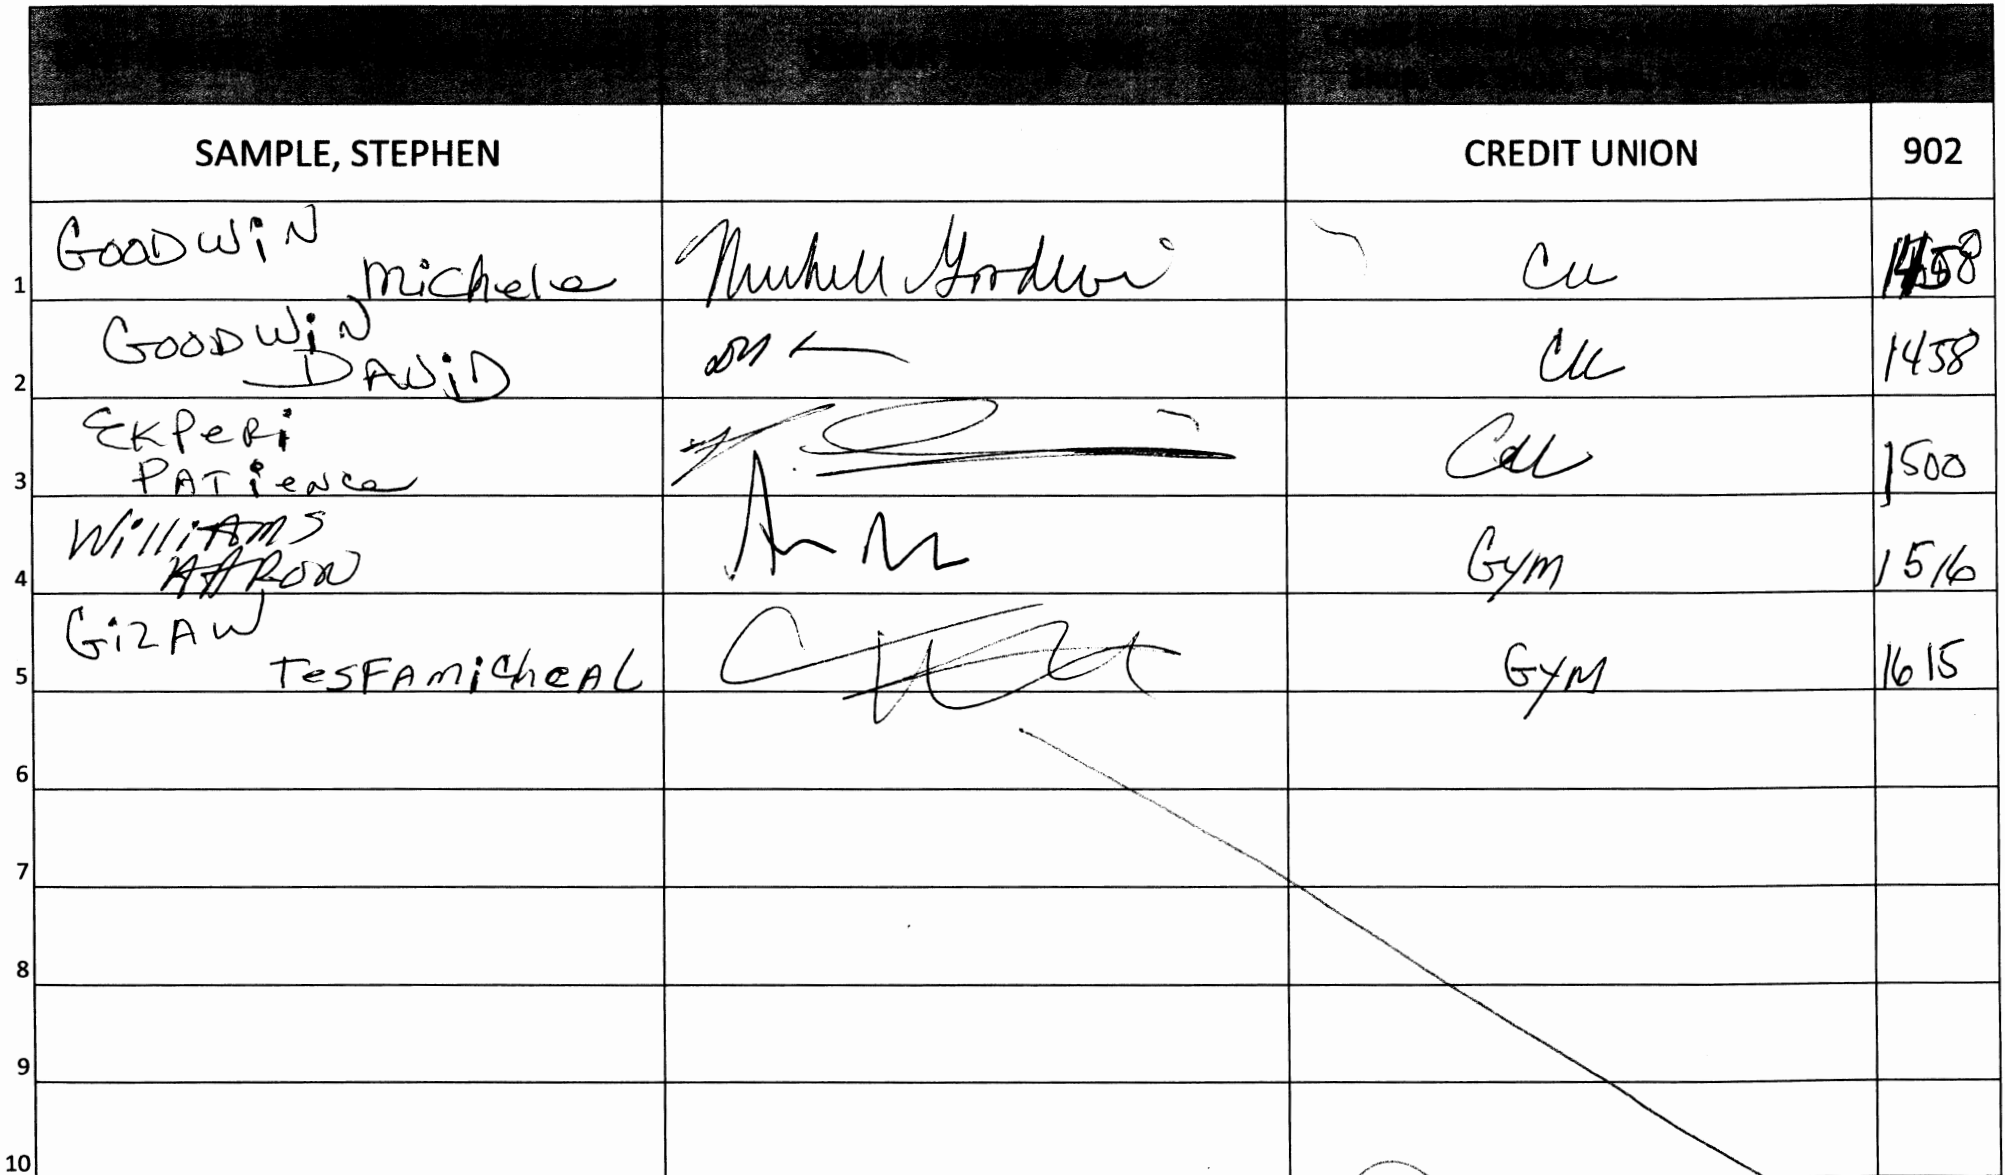 SAMPLE, STEPHEN CREDIT UNION 902
GOODWIN
1 Michele Michele Goodwin CU 1458
GOODWIN
2 DAVID CU 1458
EKPERI
3 PATIENCE CU 1500
WILLIAMS
4 AARON GYM 1516
GIZAW
5 TESFAMICHEAL GYM 1615
6
7
8
9
10